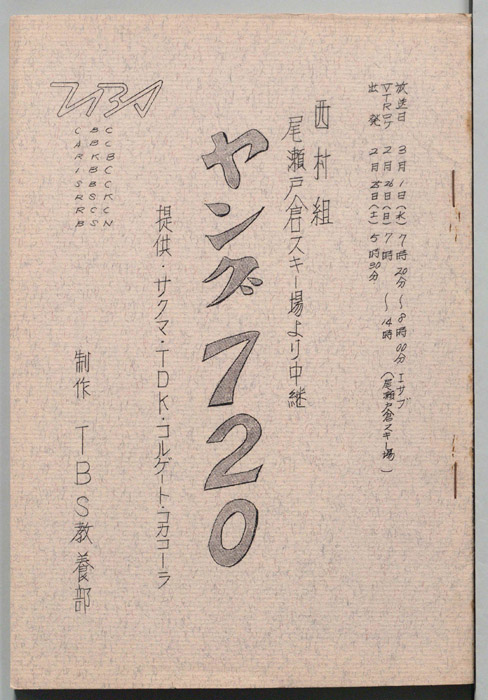 放送日 3月1日(水) 7時20分〜8時00分 エサブ
VTRロケ 2月26日(日) 7時〜14時 (尾瀬戸倉スキー場)
出発 2月25日(土) 5時30分
西村組
尾瀬戸倉スキー場より中継
ヤング720
提供・サクマ・TDK・コルゲート・コカコーラ
TBS
CBC
ABC
RKB
IBC
SBC
RSK
RCC
BSN
制作 TBS教養部